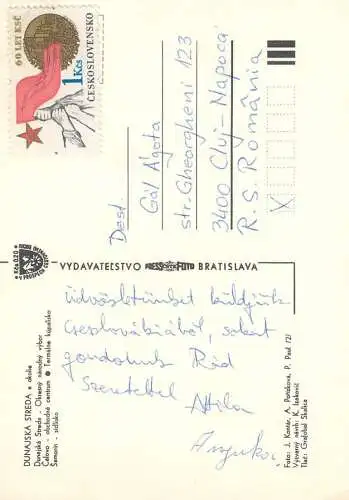 60 LET KSČ
1 Kčs
ČESKOSLOVENSKO
Dest.
Gál Ágota
str. Gheorgheni 123
3400 Cluj-Napoca
R. S. România
VYDAVATEĽSTVO PRESSFOTO BRATISLAVA
DUNAJSKÁ STREDA a okolie
Dunajská Streda - Okresný národný výbor
Čalovo - obchodné centrum ● Termálne kúpalisko
Šamorín - sídlisko
Üdvözletünket küldjük
Csehszlovákiából, sokat
gondolunk Rád
Szeretettel
Attila
Foto: J. Kontár, A. Partáková, P. Paul /2/
Výtvarný návrh: K. Izakovič
Tlač: Grafobal Skalica